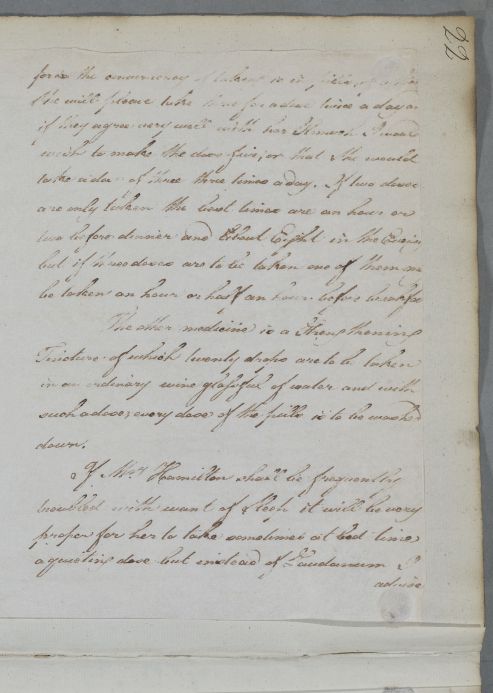 22
for in the conveniency of taken is in pills of which
she will please take three for a dose twice a day or
if they agree very well with her stomach I would
wish to make the dose five, or that she would
take a dose of three three times a day. If two doses
are only taken the best times are an hour or
two before dinner and about Eight in the Evening
but if three doses are to be taken one of them may
be taken an hour or half an hour before breakfast
The other medicine is a Strengthening
Tincture of which twenty drops are to be taken
in an ordinary wine glassful of water and with
such a dose, every dose of the pills is to be washed
down.
If Mrs Hamilton shall be frequently
troubled with want of sleep it will be very
proper for her to take sometimes at bed time
a quieting dose but instead of Laudanum I
advise